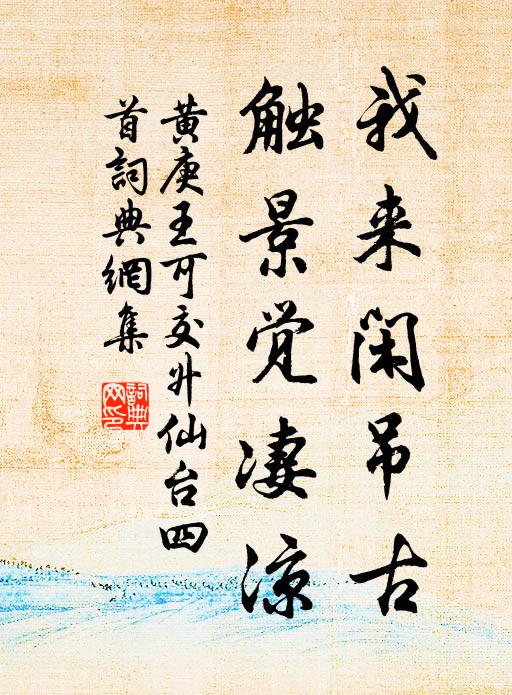 我来闲吊古
触景觉凄凉
黄庚王可交升仙台四
首詞典網集
詞典
网印